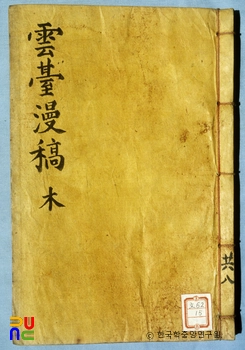 雲臺漫稿 木
共八
ⓒ한국학중앙연구원